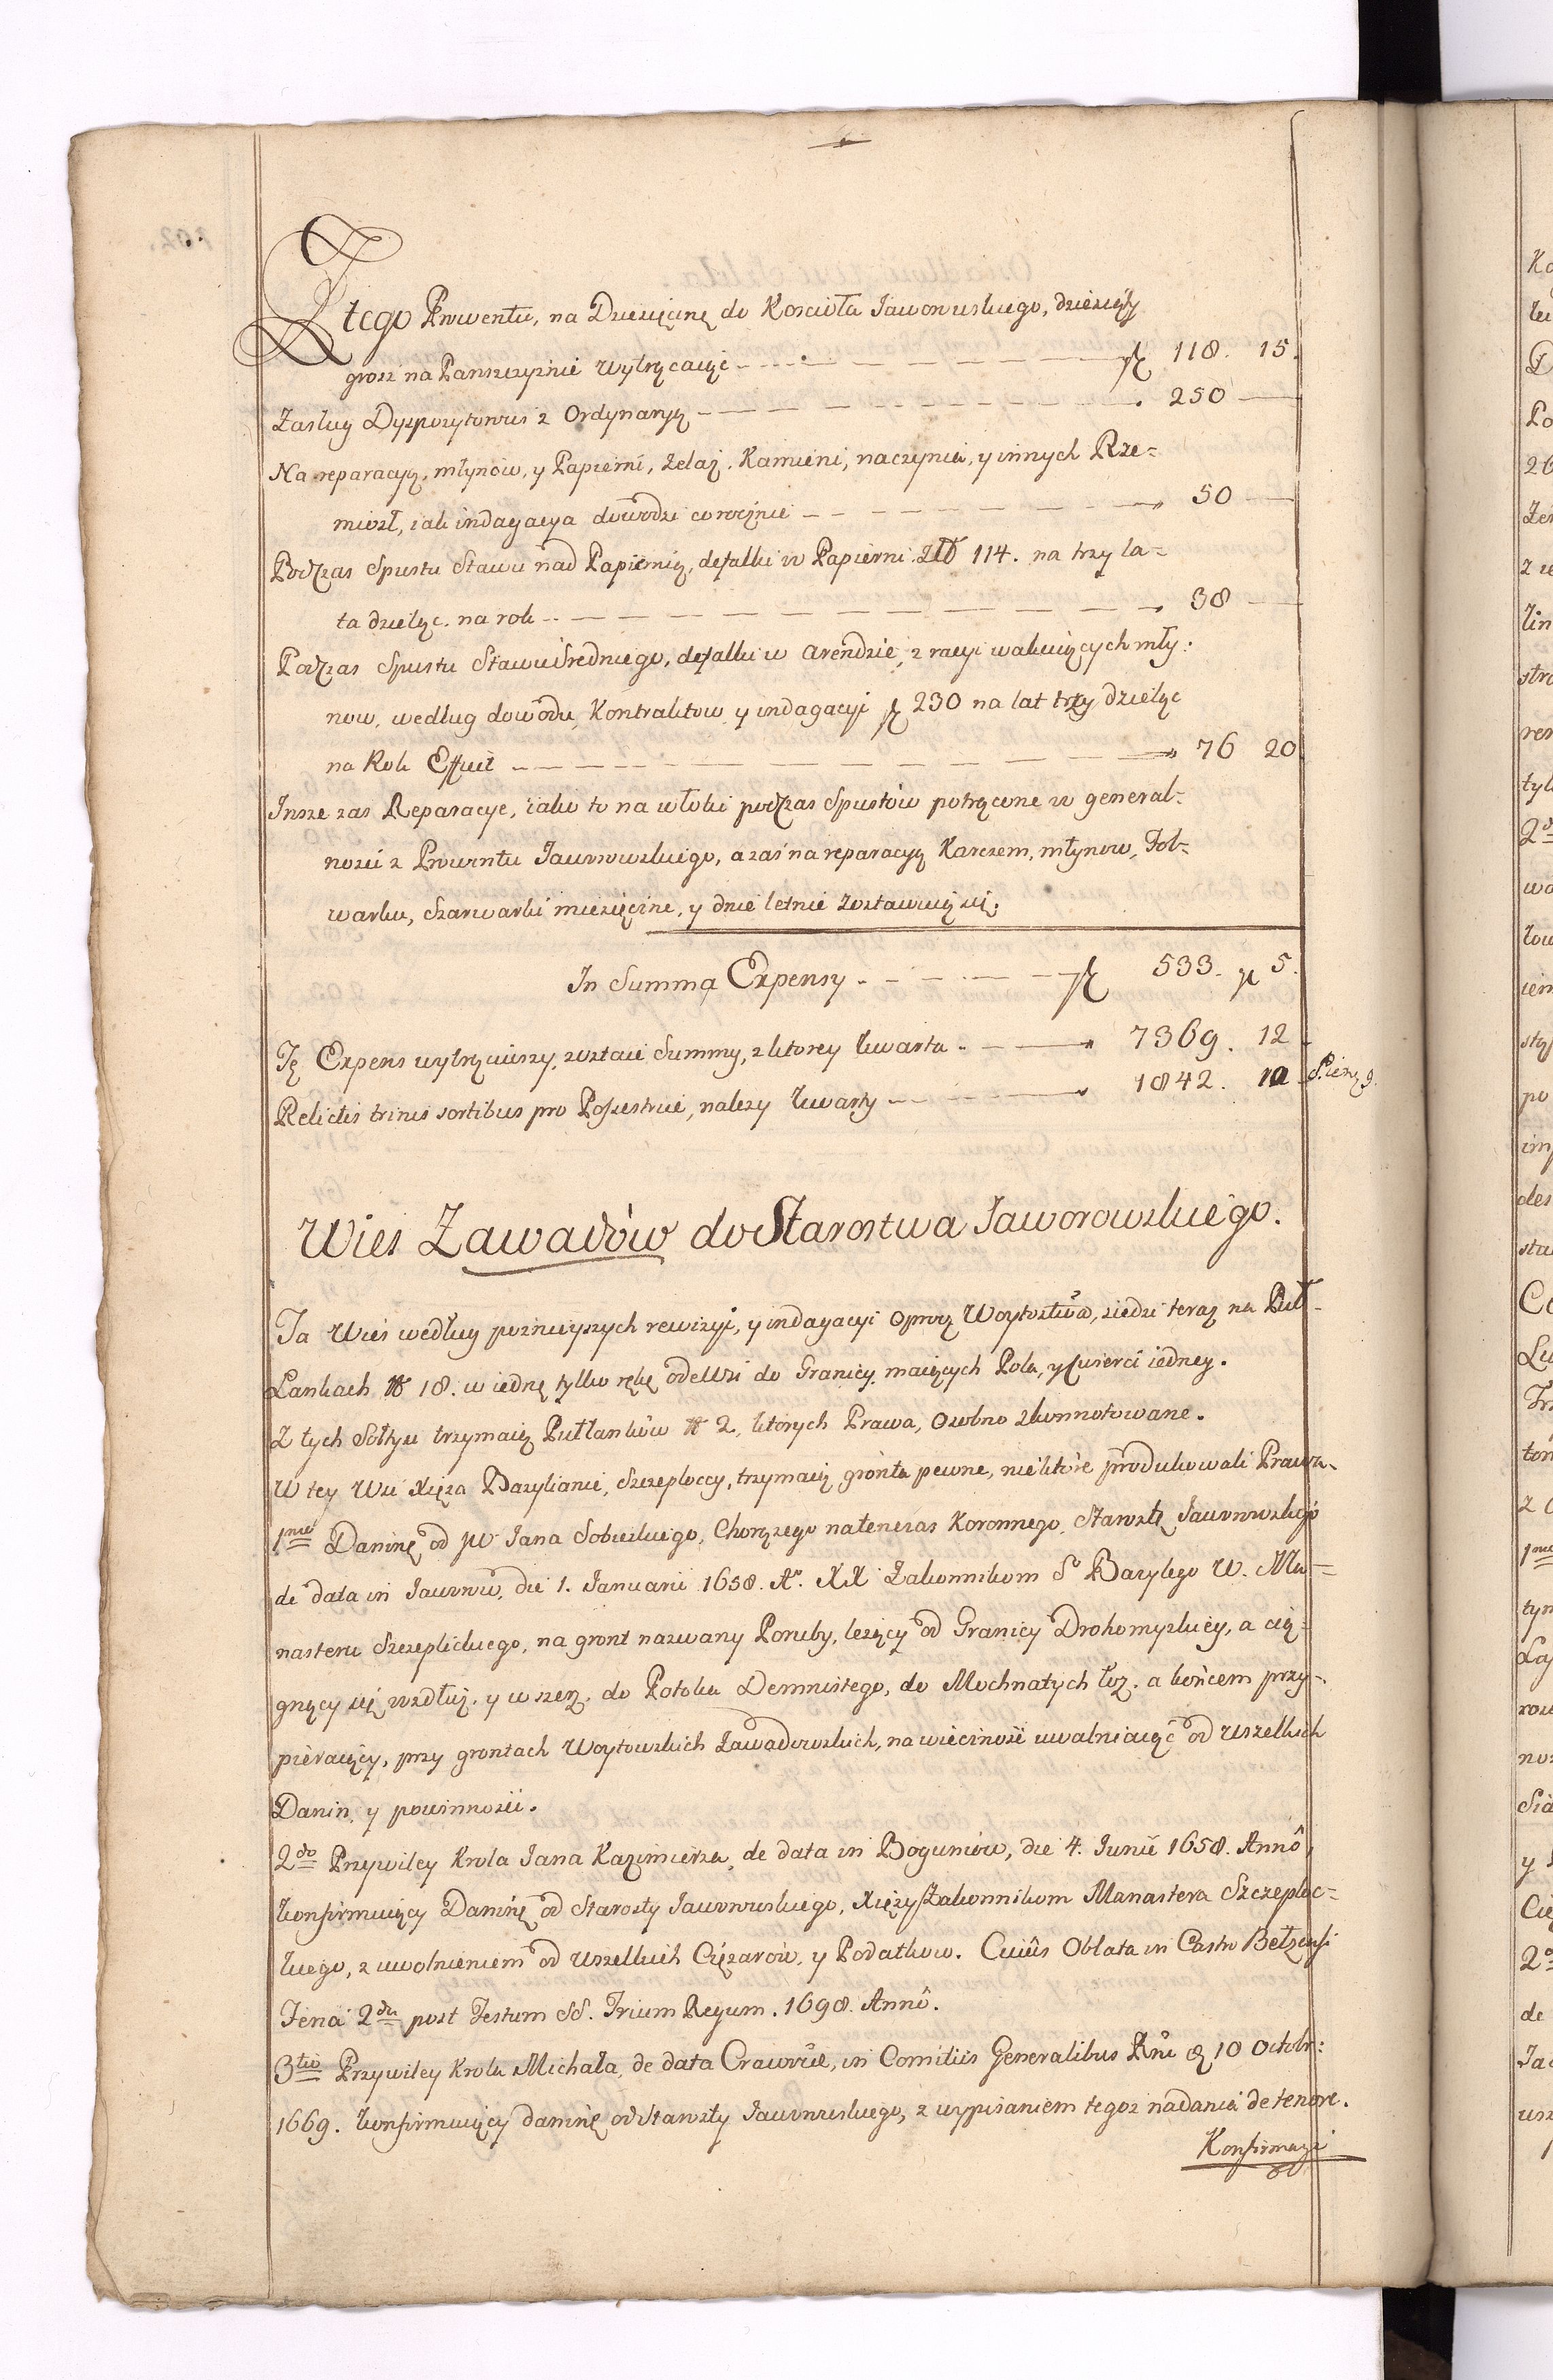 Z tego Prowentu, na Dziesięcinę do Koscioła Jaworowskiego, dziesiąty
grosz na Panszczyznie wytrącaiąc - - - - - - f 118. 15.
Zasług Dyspozytorowi z Ordynaryą - - - - - - 250 -
Na reparacyą, młynów, y Papierni, żelaz, Kamieni, naczynia, y innych Rze=
miosł, iak indagacya dowodzi corocznie - - - - - 50 -
Podczas Spustu Stawu nad Papiernią, defalki w Papierni Zł 114. na trzy la=
ta dzieląc. na rok - - - - - - 38 -
Podczas Spustu Stawu Sredniego, defalki w arendzie, z racyi wakuiących mły:
now, według dowodu, Kontraktow y indagacyi f 230 na lat trzy dzieląc
na Rok Efficit - - - - - - 76 20.
Insze zas Reparacye, iako to na włoki podczas Spustów potrącone w general=
nosci z Prowentu Jaworowskiego, a zaś na reparacyą Karczem, młynow, Fol=
warku, Szarwarki miesięczne, y dnie letnie zostawuią się.
In Summa Expensy - - - - f 533. g 5.
Tę Expens wytrąciwszy, zostaie Summy, z ktorey kwarta - - - 7369. 12.
Relictis trinis sortibus pro Possessore, nalezy kwarty - - - 1842. 10
Wies Zawadów do Starostwa Jaworowskiego.
Ta Wieś według poznieyszych rewizyi, y indagacyi oprocz Woytostwa, siedzi teraz na Puł=
Łankach N 18. w iednę tylko rękę odewsi do Granicy maiących Pola, y Cwierci iedney.
Z tych Sołtysi trzymaią Pułłanków N 2, ktorych Prawa, osobno zkonnotowane.
W tey Wsi Xięża Bazylianie, Szczeploccy, trzymaią gronta pewne, niektóre produkowali Prawa.
1mo Daninę od JW Jana Sobieskiego, Chorązego natenczas Koronnego, Starostę Jaworowskiego
de data in Jaworow, die 1. Januarii 1658. Ao. XX Zakonnikom S Bazylego W. Ma=
nasteru Szczeplickiego, na gront nazwany Poruby, lezący od Granicy Drohomyskiey, a cią=
gnący się wzdłuż. y wszerz. do Potoka Demnistego, do Mochnatych łoz. a końcem przy=
pieraiący, przy grontach Woytowskich Zawadowskich, na wiecznosć uwalniaiąc od wszelkich
Danin, y powinnosci.
2do Przywiley Krola Jana Kazimierza, de data in Boguniow, die 4. Junii 1658. Annô,
konfirmuiący Daninę od Starosty Jaworowskiego, Xięzy Zakonnikom Manastera Szczeploc=
kiego, z uwolnieniem od wszelkich Cięzarów, y Podatkow. Cuius Oblata in Castro Bełzensi
Feria 2da post Festum SS. Trium Regum. 1698. Annô.
3tio Przywiley Krola Michała, de data Cracoviæ, in Comitiis Generalibus Rni 10 Octobr:
1669. konfirmuiący daninę od Starosty Jaworowskiego, z wypisaniem tegoz nadania de tenore.
Konfirmacyi